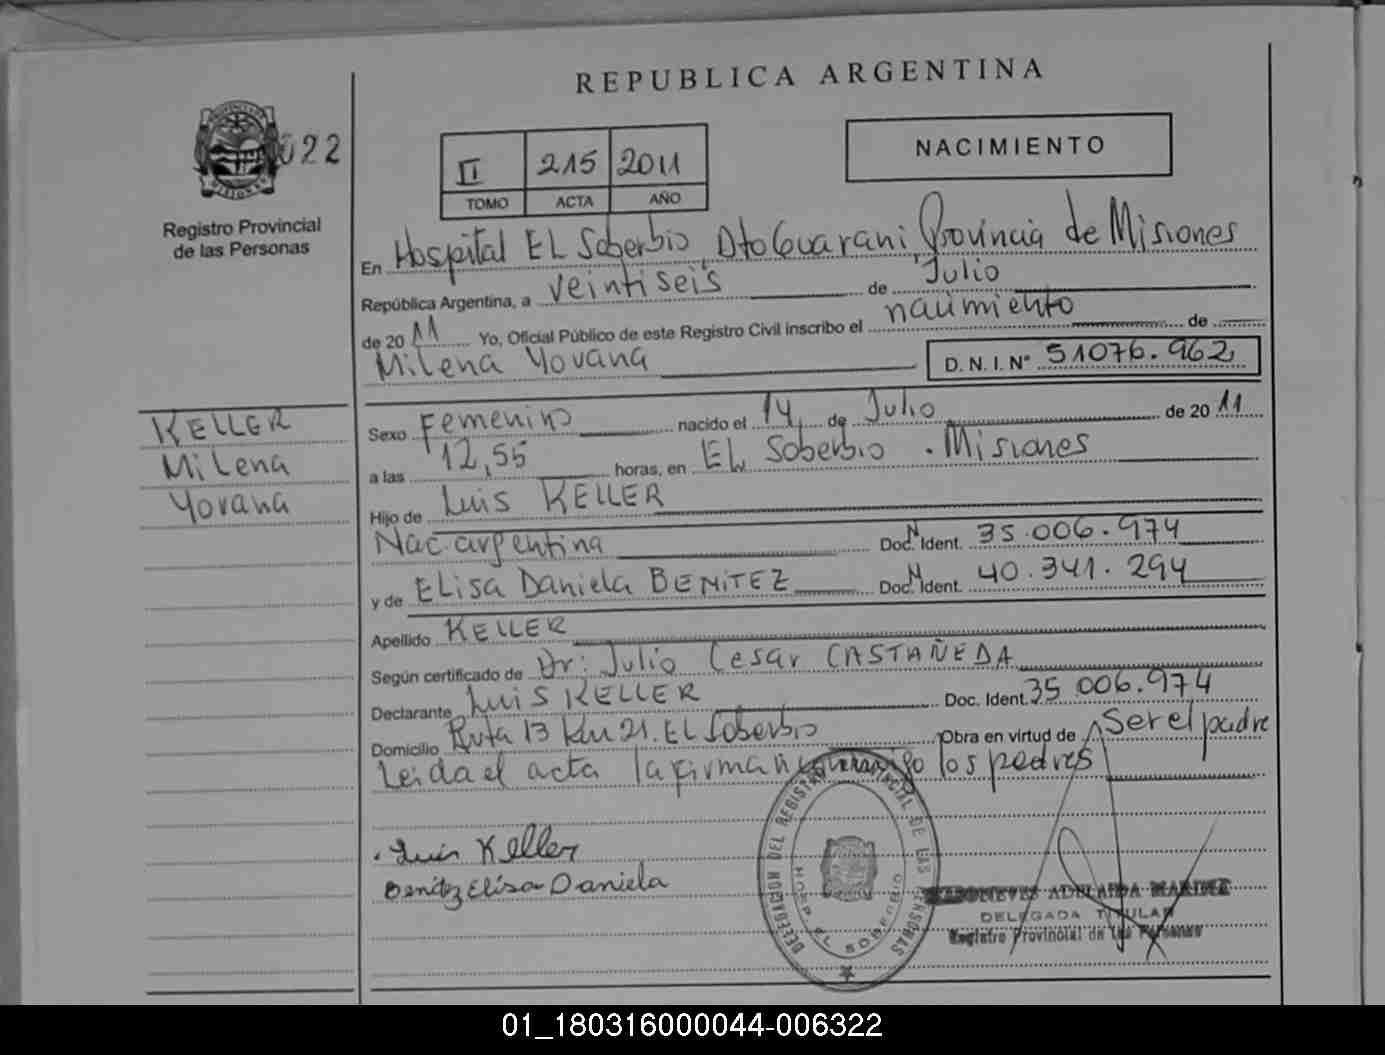 REPUBLICA ARGENTINA
022
Registro Provincial
de las Personas
II 215 2011
TOMO ACTA AÑO
NACIMIENTO
En Hospital EL Soberbio, Dto Guarani, Provincia de Misiones
República Argentina, a veintiseis de Julio
de 2011 Yo, Oficial Público de este Registro Civil inscribo el nacimiento de
Milena Yovana D. N. I. N° 51076.962
KELLER
Milena
Yovana
Sexo Femenino nacido el 14 de Julio de 2011
a las 12,55 horas, en EL Soberbio . Misiones
Hijo de Luis KELLER
Nac argentina Doc. N Ident. 35.006.974
y de Elisa Daniela BENITEZ Doc. N Ident. 40.341.294
Apellido KELLER
Según certificado de Dr: Julio Cesar CASTAÑEDA
Declarante Luis KELLER Doc. Ident. 35 006.974
Domicilio Ruta 13 km 21. EL Soberbio Obra en virtud de Ser el padre
Leida el acta la firman conmigo los padres
Luis Keller
Benítez Elisa Daniela
DELEGACION DEL REGISTRO PROVINCIAL DE LAS PERSONAS
HOSP. EL SOBERBIO
ADELAIDA
DELEGADA TITULAR
Registro Provincial de las Personas
01_180316000044-006322